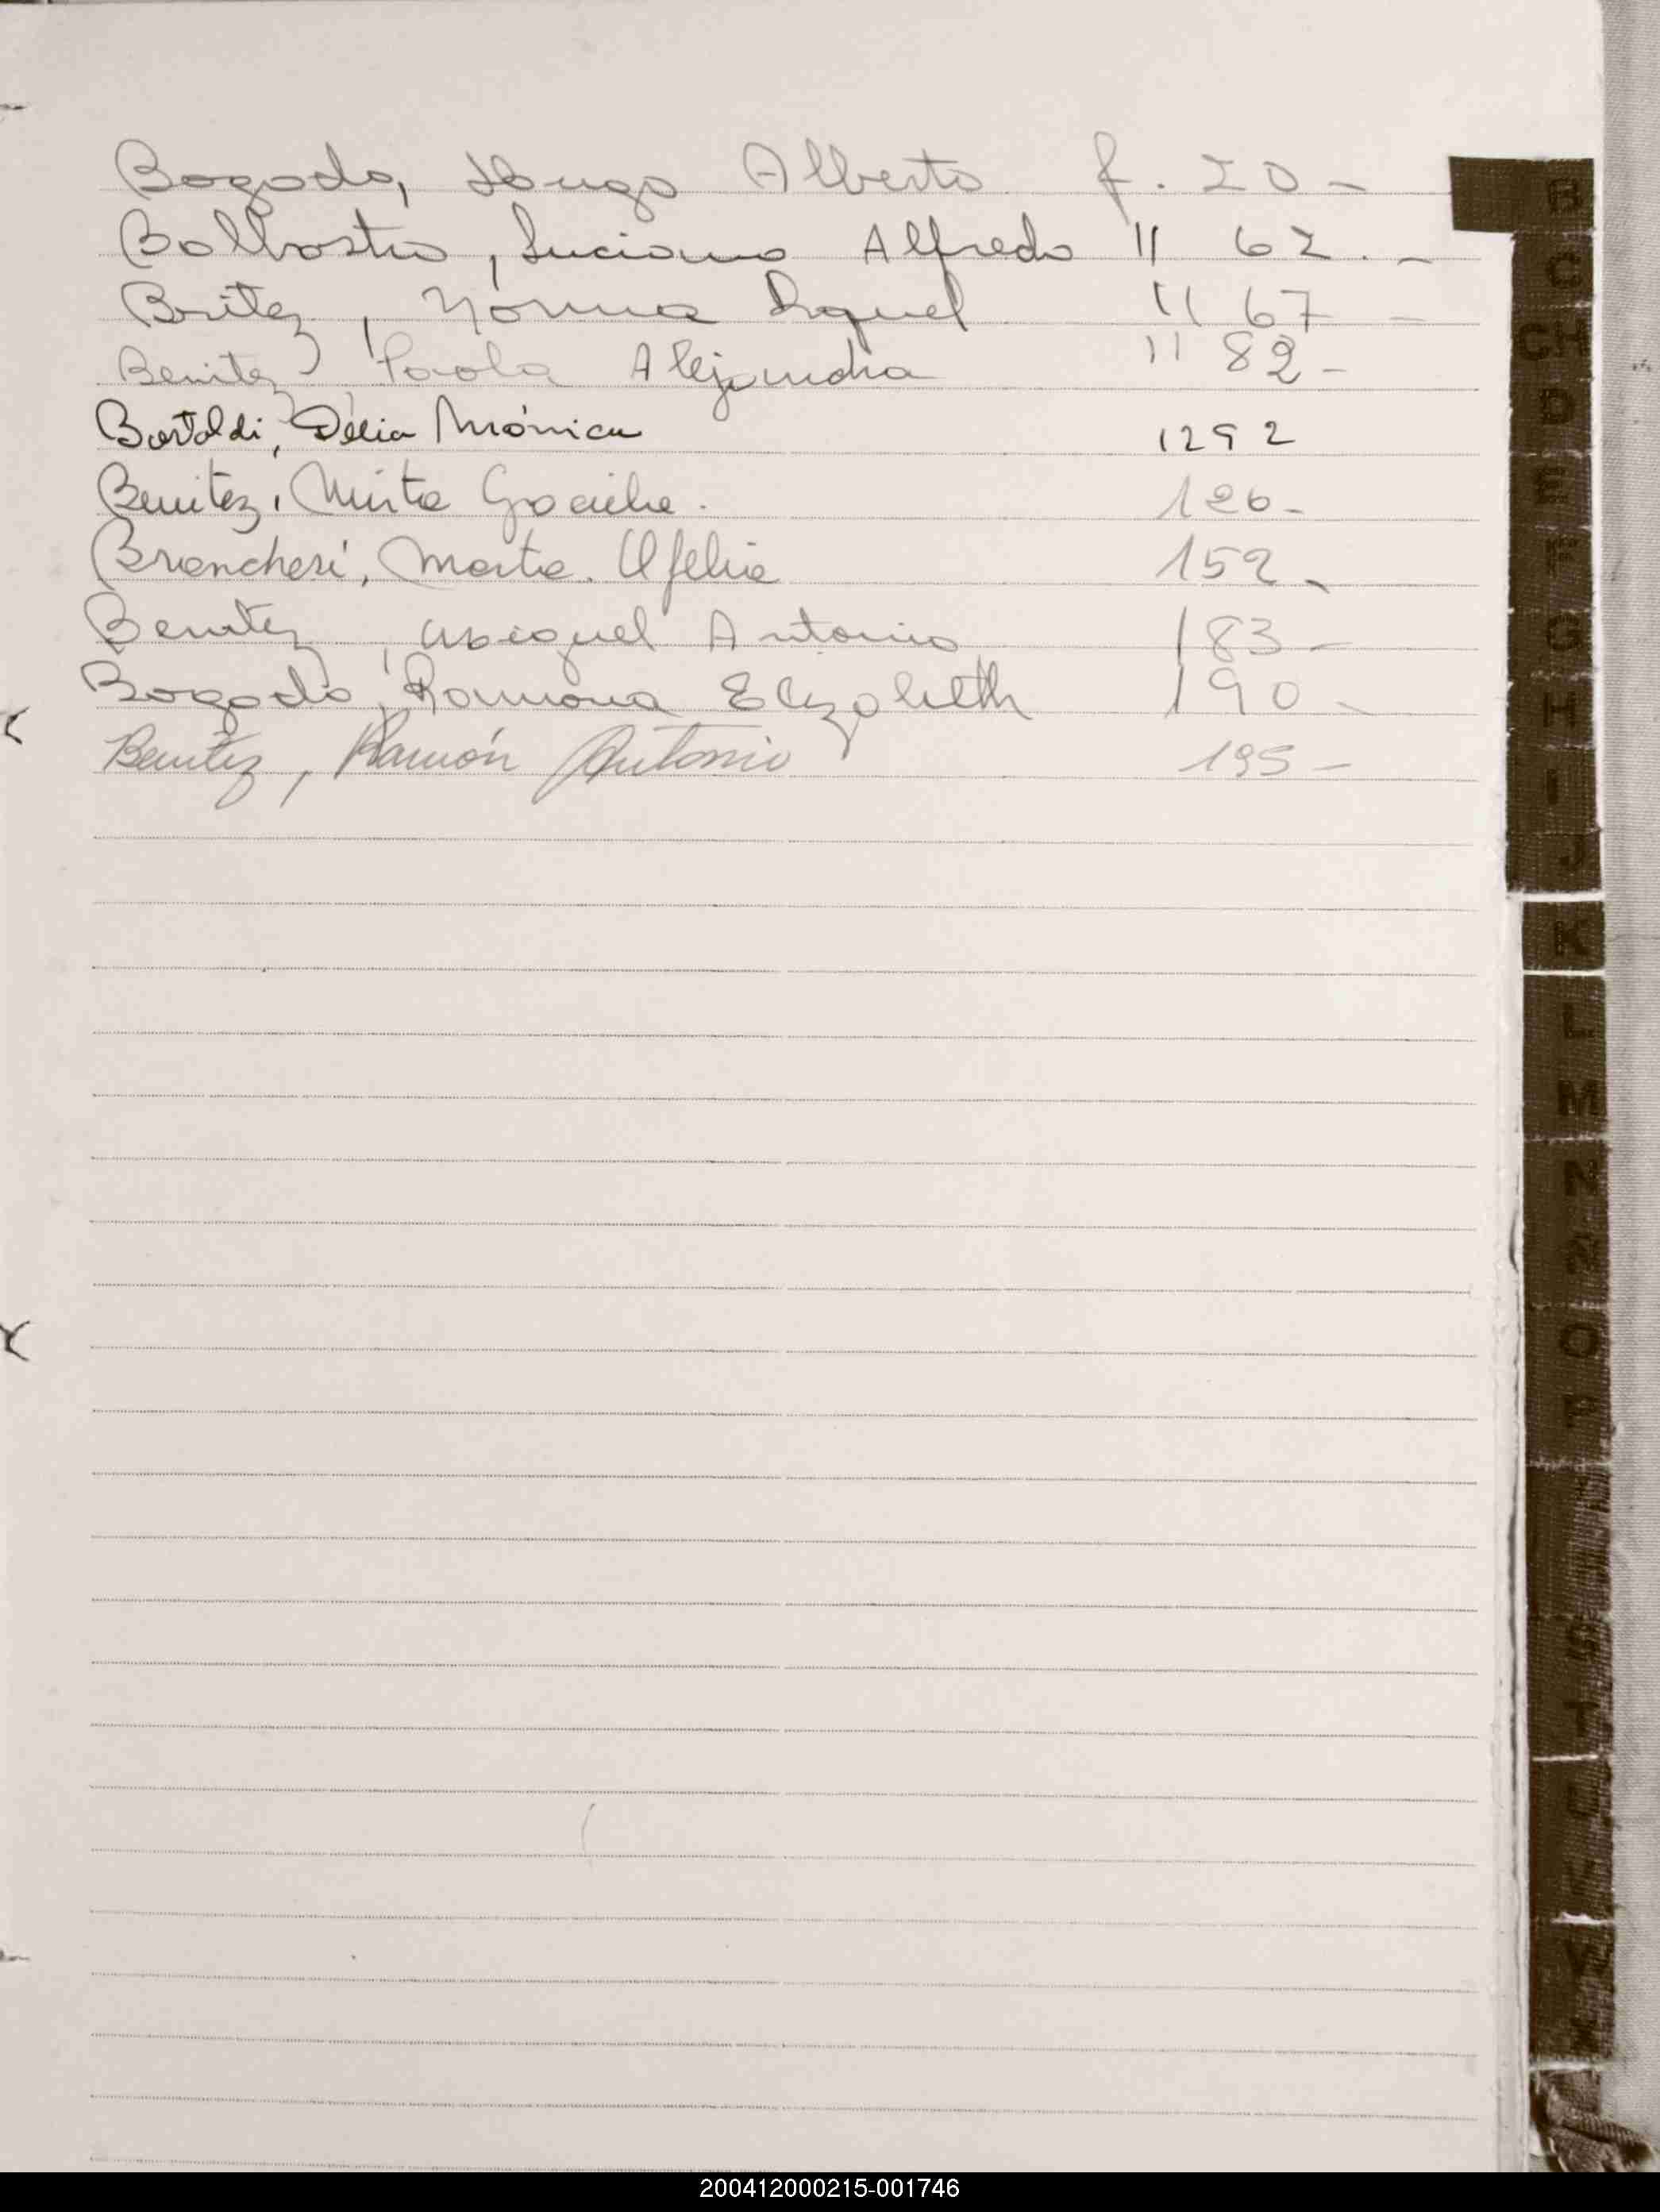 Bogado, Hugo Alberto f. 20-
Balbastro, Luciano Alfredo " 62.-
Britez, Norma Raquel " 67-
Benitez Paola Alejandra " 82-
Bartoldi, Delia Mónica 129 2
Benitez, Mirta Graciela. 126-
Brancheri, Marta Ofelia 152-
Benitez, Miguel Antonio 183-
Bogado, Ramona Elizabeth 190-
Benítez, Ramón Antonio 195-
B
C
CH
D
E
F
G
H
I
J
K
L
M
N
Ñ
O
P
S
T
U
V
Y
200412000215-001746